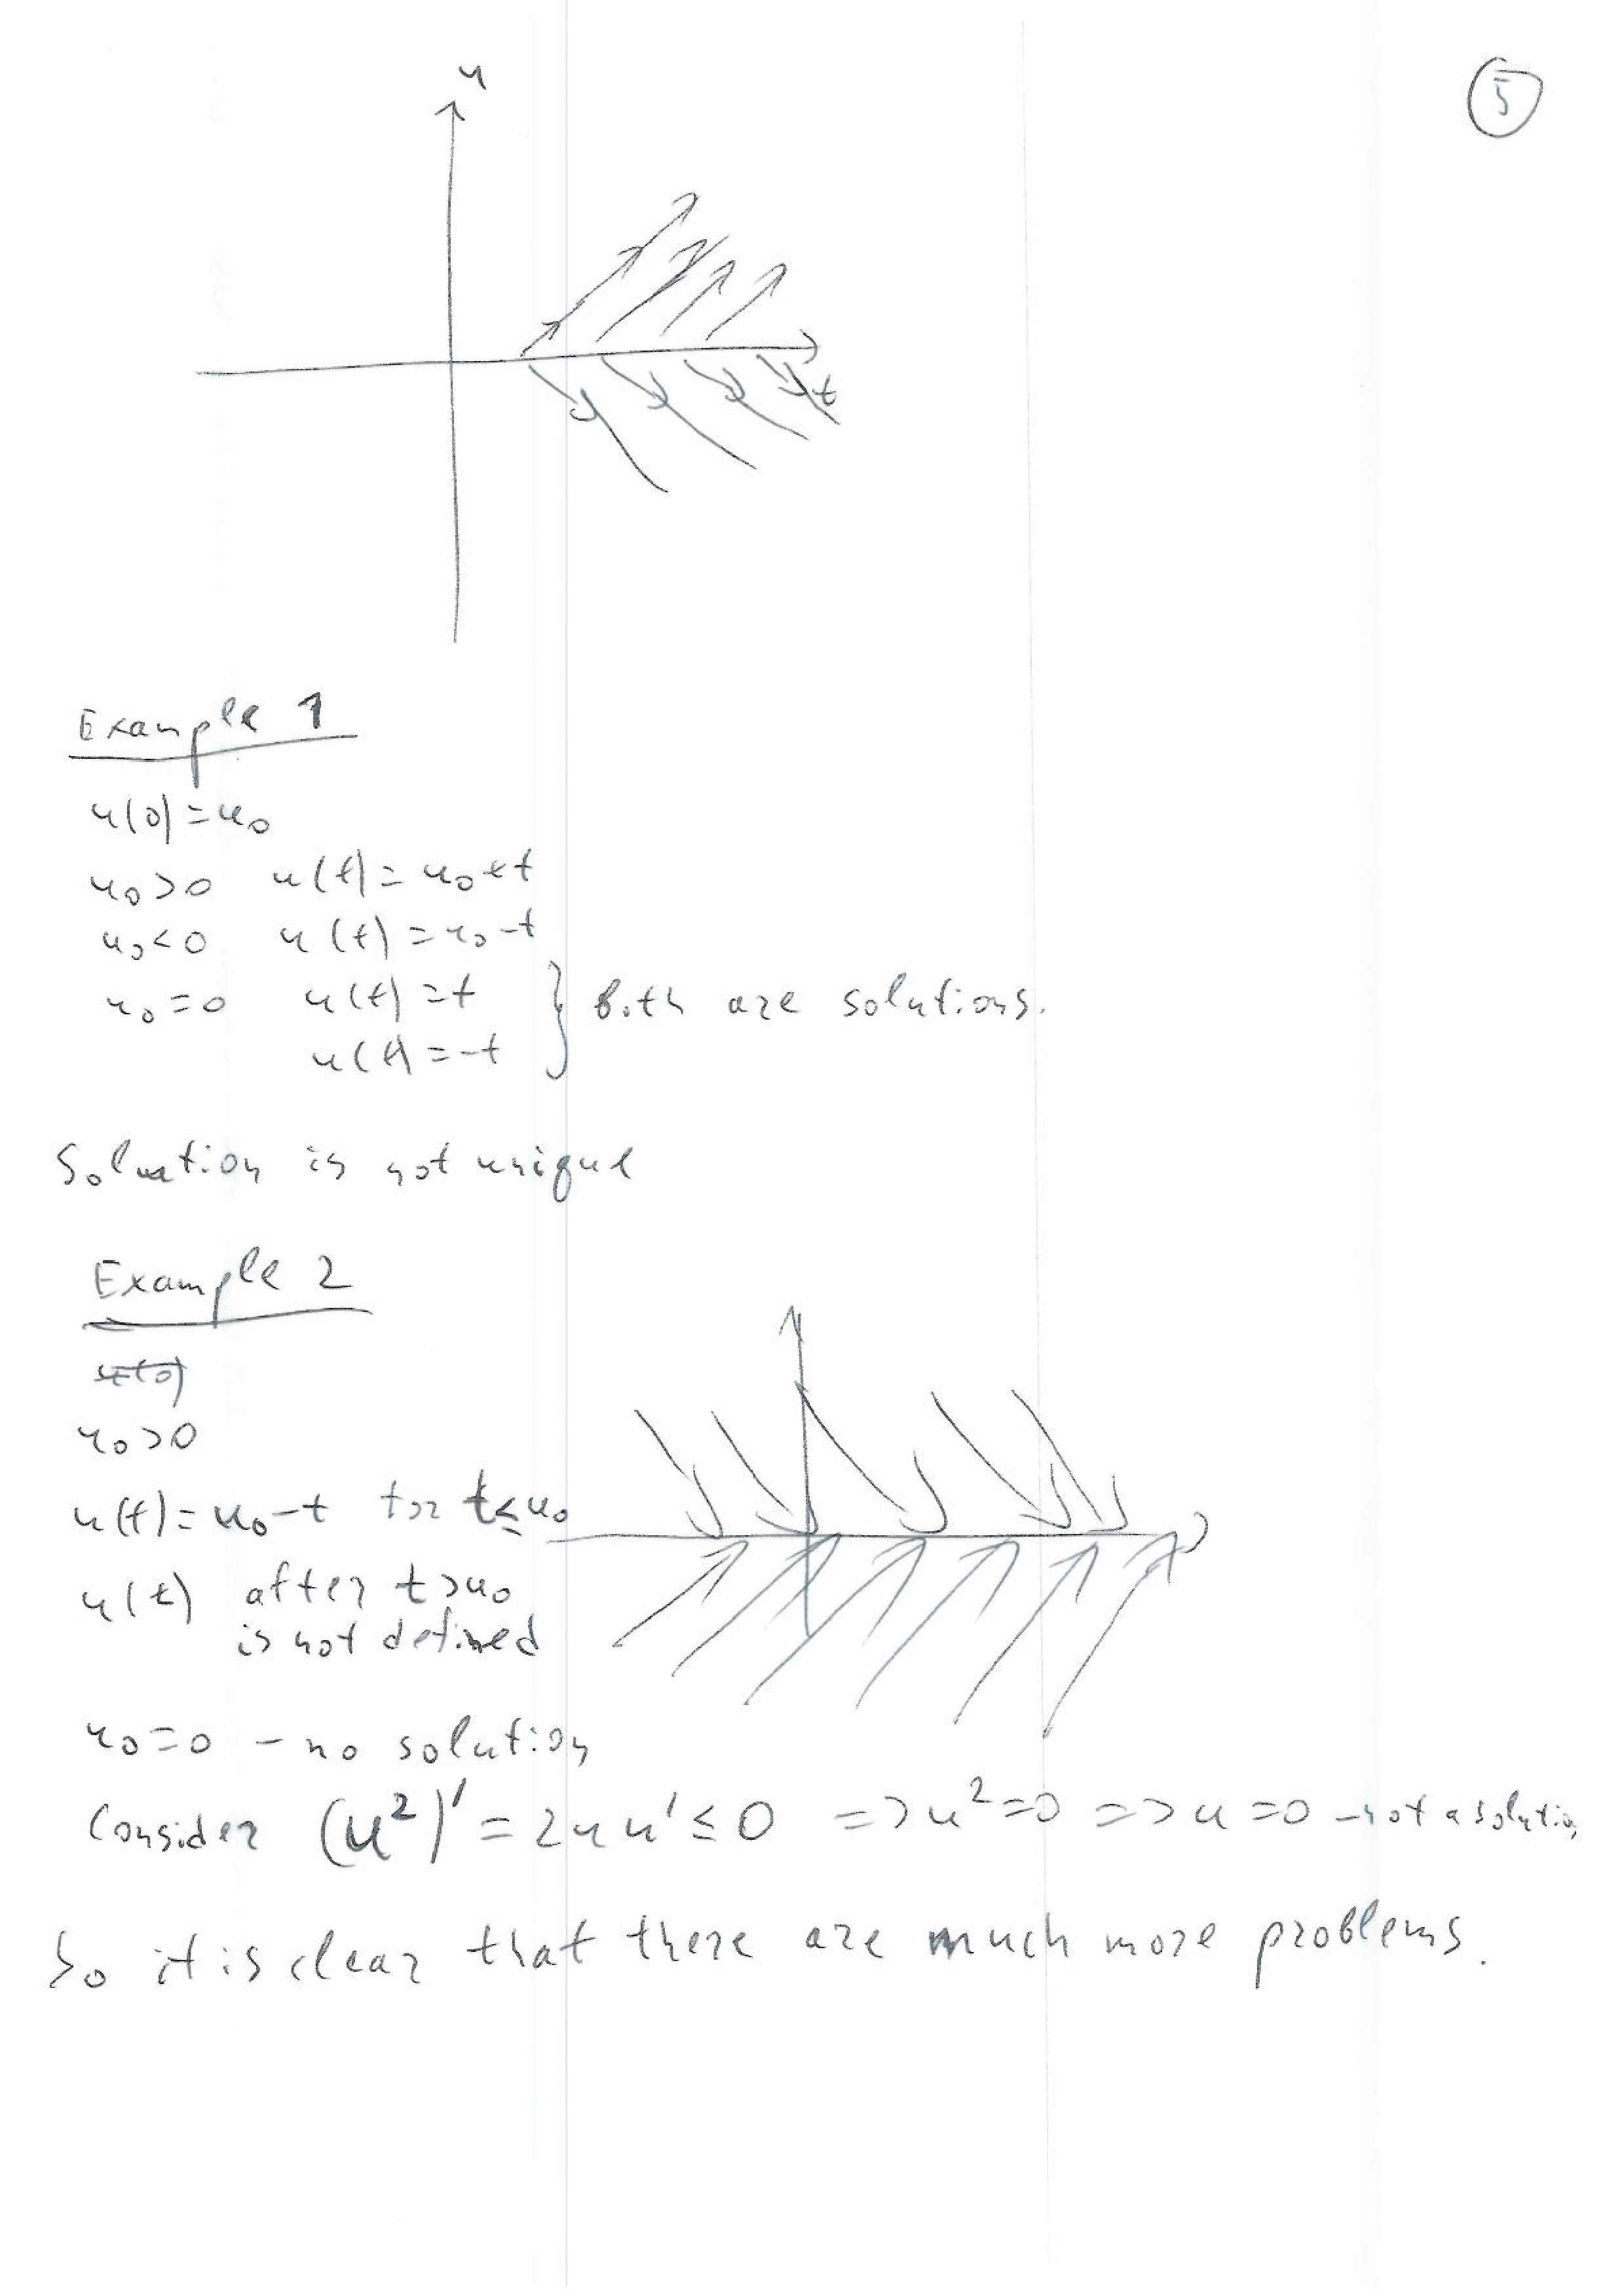 u
5
t
Example 1
u(0)=u₀
u₀>0 u(t)=u₀+t
u₀<0 u(t)=u₀-t
u₀=0 u(t)=t } both are solutions.
u(t)=-t
Soluation is not unique
Example 2
u(0)
u₀>0
u(t)=u₀-t for t≤u₀
u(t) after t>u₀
is not defined
u₀=0 - no solution
Consider (u²)'=2uu'≤0 => u²=0 => u=0 - not a solution
So it is clear that there are much more problems.